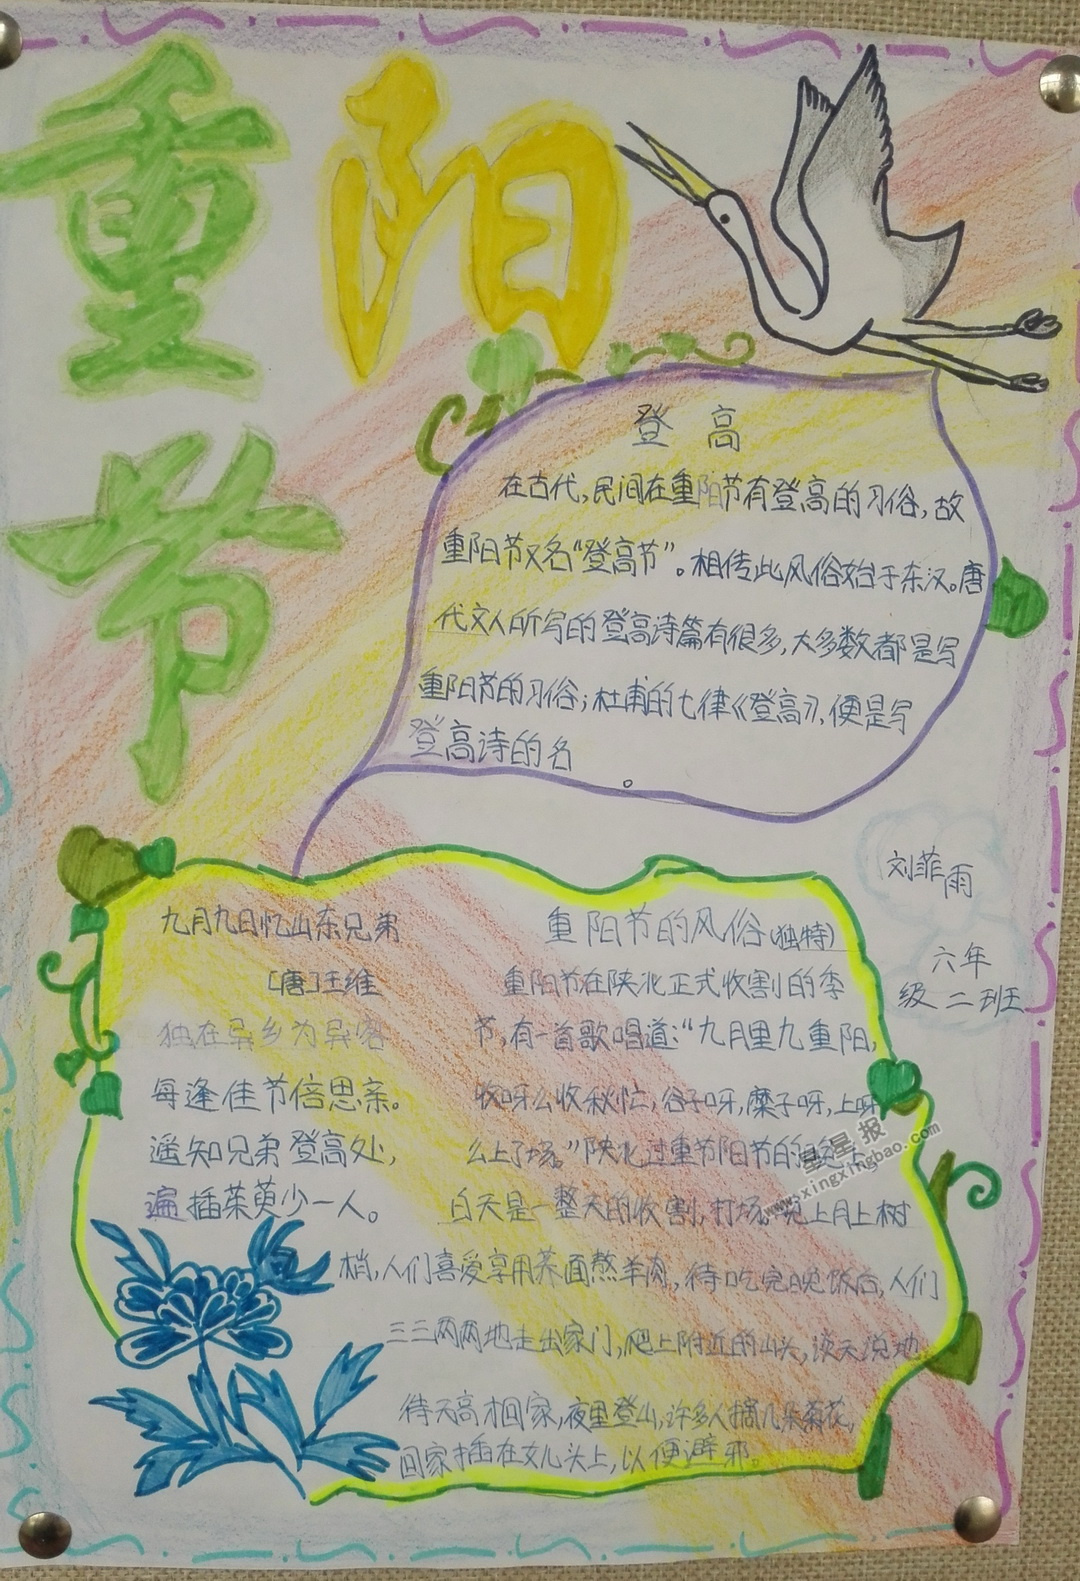 重阳
节
登高
在古代,民间在重阳节有登高的习俗,故
重阳节又名“登高节”。相传此风俗始于东汉。唐
代文人所写的登高诗篇有很多,大多数都是写
重阳节的习俗;杜甫的七律《登高》,便是写
登高诗的名
。
刘菲雨
六年
级二班
九月九日忆山东兄弟
[唐]王维
独在异乡为异客
每逢佳节倍思亲。
遥知兄弟登高处,
遍插茱萸少一人。
重阳节的风俗(独特)
重阳节在陕北正式收割的季
节,有一首歌唱道:“九月里九重阳,
收呀么收秋忙,谷子呀,糜子呀,上呀
么上了场。”陕北过重节阳节的晚上
白天是一整天的收割,打场。晚上月上树
梢,人们喜爱享用荞面熬羊肉,待吃完晚饭后,人们
三三两两地走出家门,爬上附近的山头,谈天说地
待天高才回家,夜里登山,许多人摘几朵菊花,
回家插在女儿头上,以便避邪。
星星报
www.xingxingbao.com